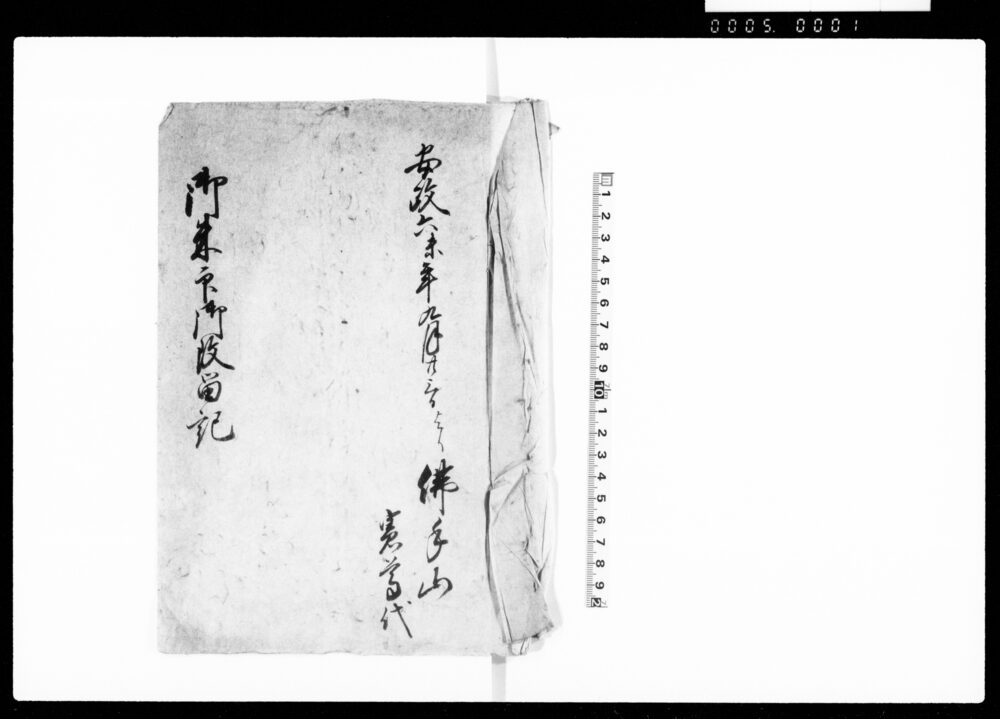 0005. 0001
安政六未年九月廿三日ゟ
佛手山
憲尊代
御朱印御改留記
1 2 3 4 5 6 7 8 9 10 1 2 3 4 5 6 7 8 9 2